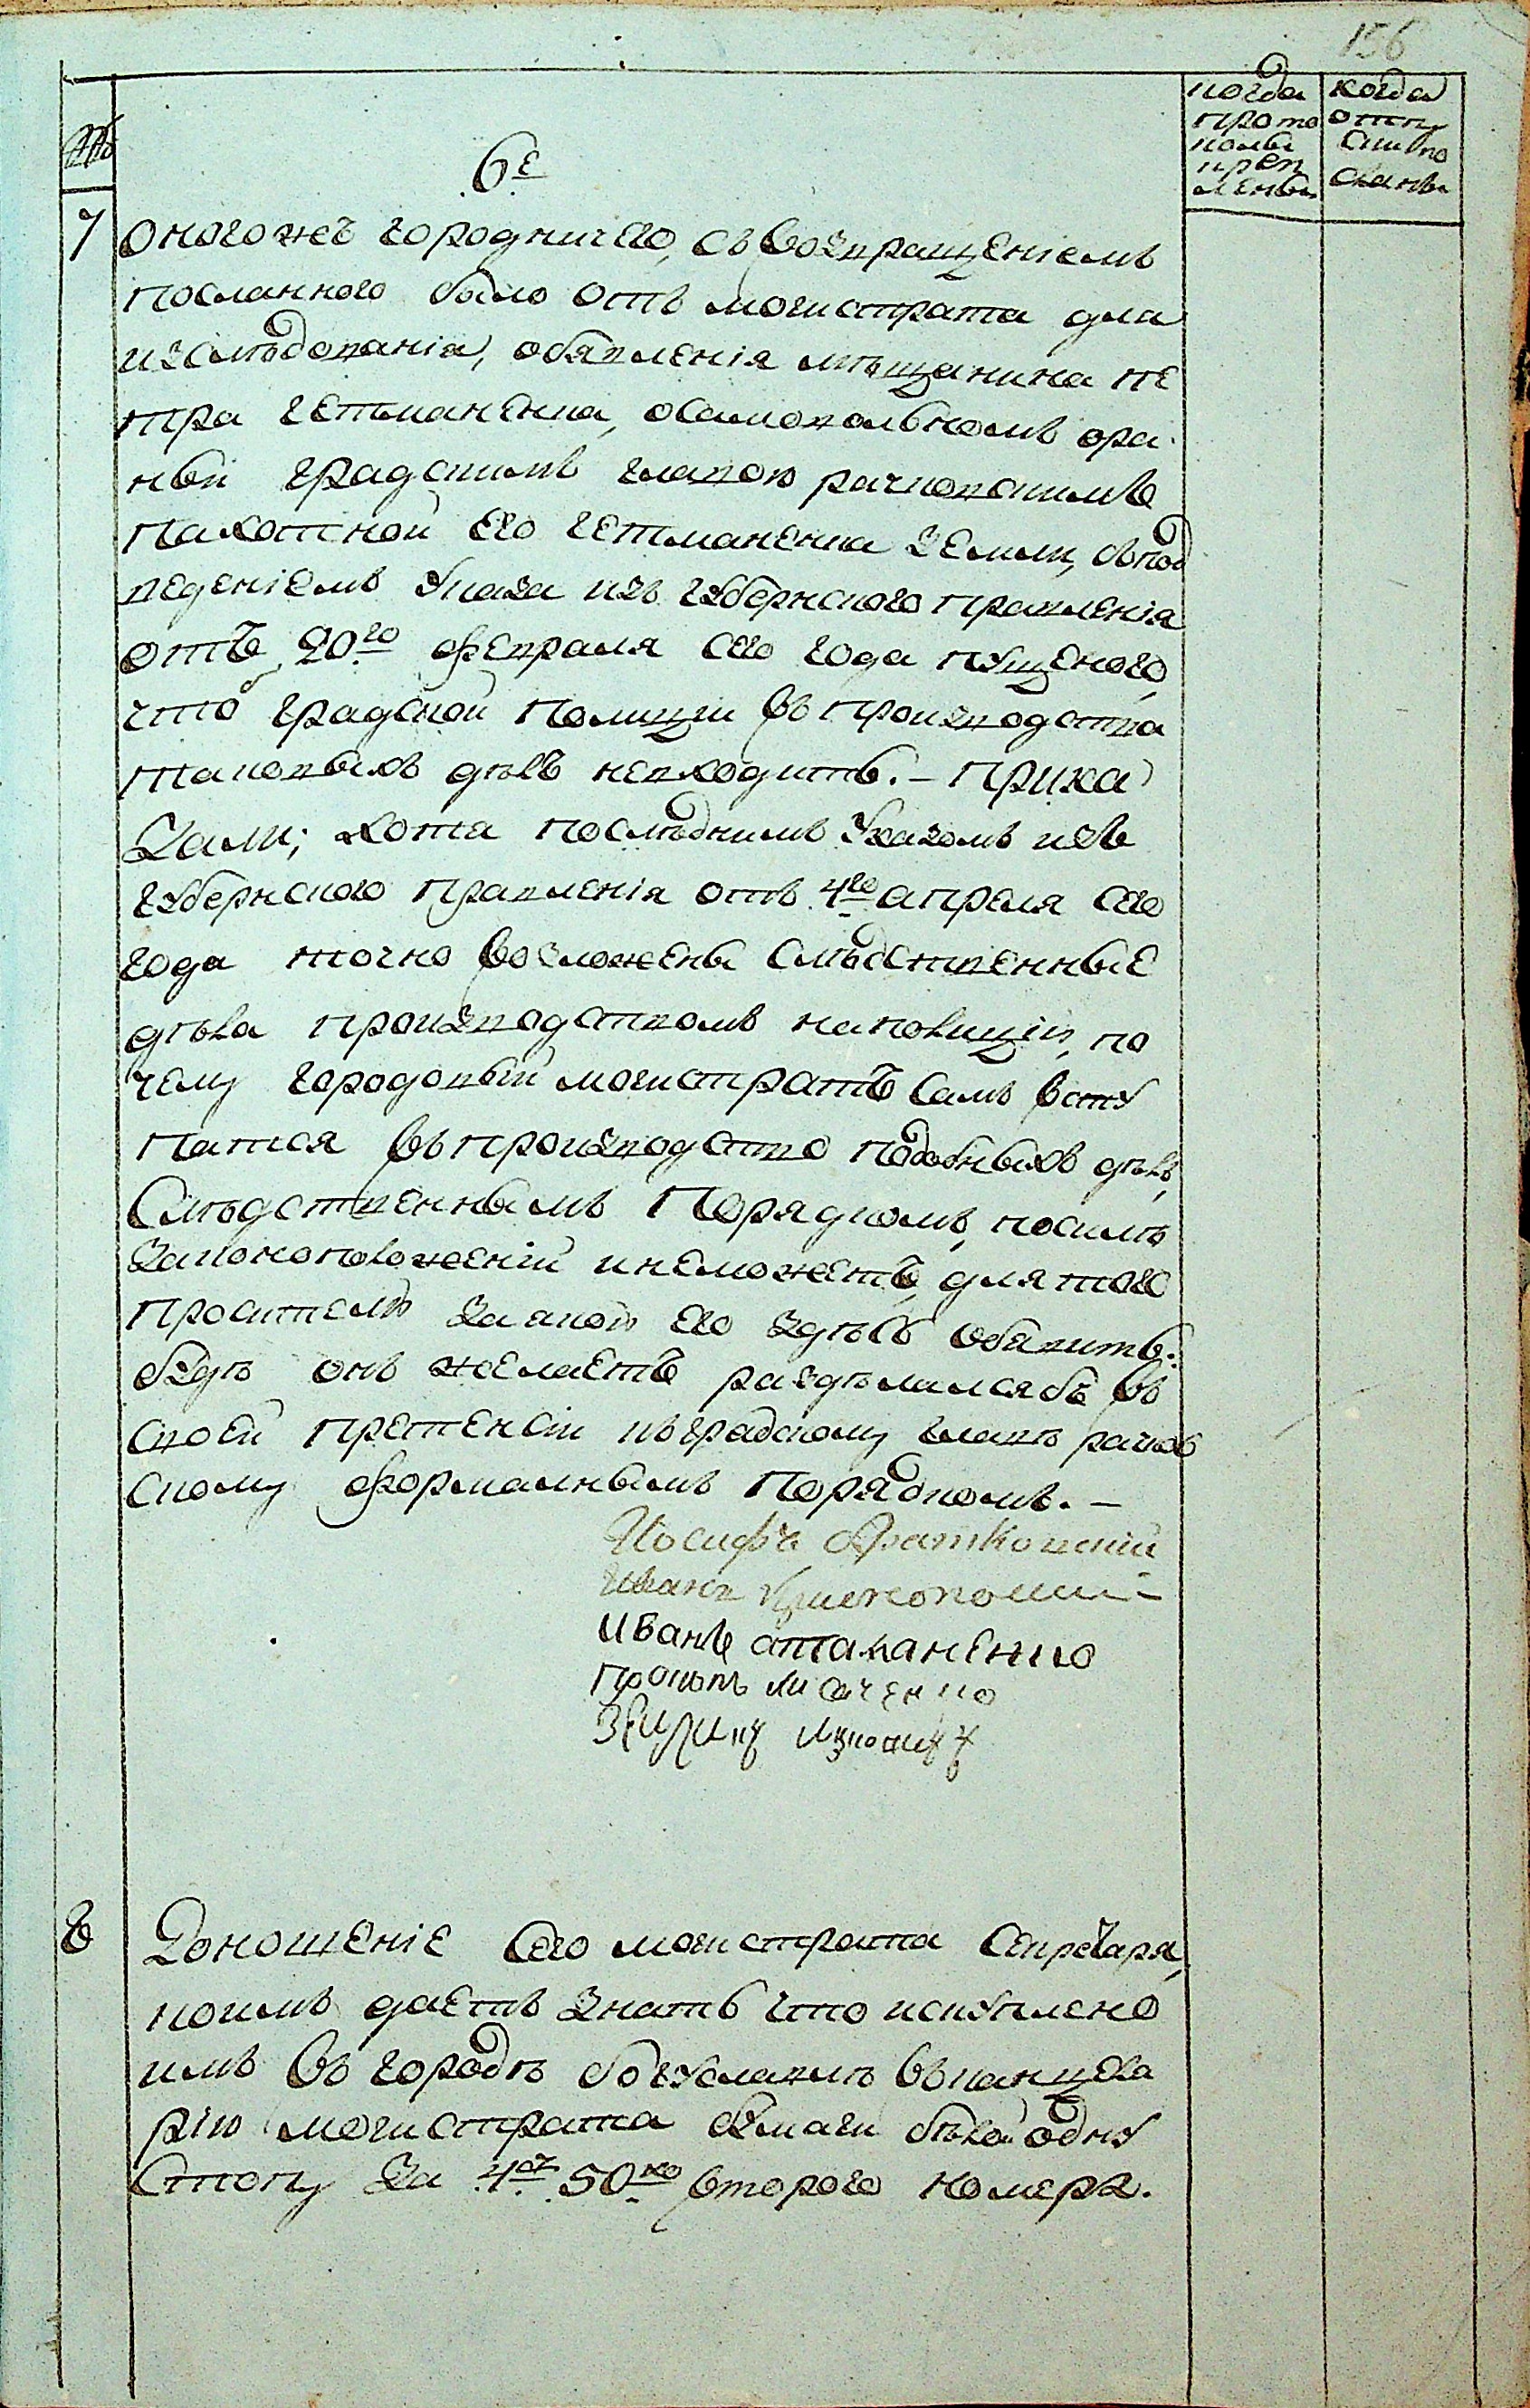 156
№
6е
когда
прото
колы
креп
лены
когда
отпу
ски по
сланы
7
оного жъ городничего, съ возвращеніемъ
посланного было отъ магистрата для
изслѣдованія, объявленія мѣщанина пе
тра гетманенка, о самовольномъ ора
ныи градскимъ главою рачковскимъ
пахотной его гетманенка земли, съ под
веденіемъ указа изъ губернского правленія
отъ 20го февраля сего года пущеного,
что градской полиции въ производства
таковыхъ дѣлъ невходить. – Прика
зали; хотя послѣднимъ указомъ изъ
губернского правленія отъ 4го апреля сего
года точно возложены слѣдственные
дѣла производствомъ на полицію, по
чему городовый магистратъ самъ всту
патся въ производство подобныхъ дѣлъ,
слѣдственнымъ порядкомъ, по силѣ
законоположеній и неможетъ, для того
просителю за явкою его здѣсь обявить:
будѣ онъ желаетъ раздѣлался бъ въ
своей претенсіи къ градскому главѣ рачков
скому формалнымъ порядкомъ. –
Иосифъ
Иванъ
Иванъ атаманенко
Прокопъ
8
Доношеніе сего магистрата секретаря,
коимъ даетъ знать что искуплено
имъ въ городѣ богуславлѣ въ канцеля
рію магистрата бумаги бѣлой одну
стопу за 4ру 50ко второго номера.